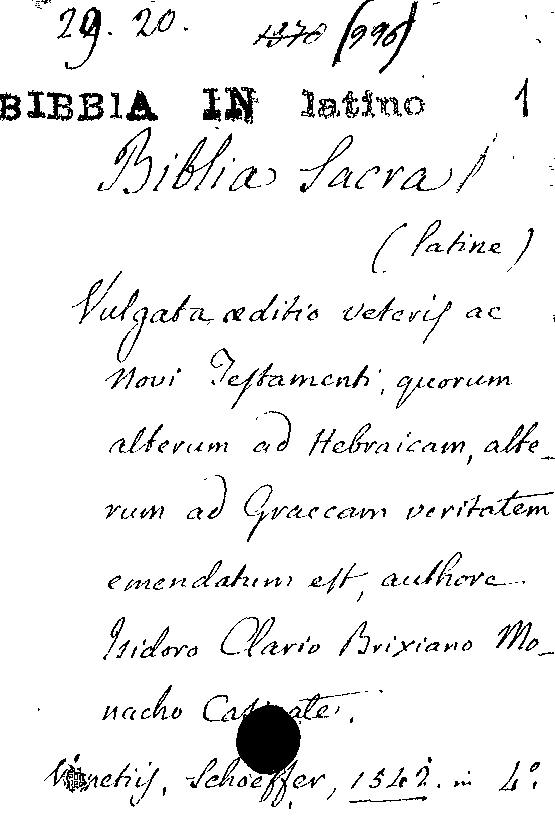 29. 20. 1378 (996)
BIBBIA IN latino 1
Biblia Sacra
(latine)
Vulgata æditio veteris ac
Novi Testamenti, quorum
alterum ad Hebraicam, alte-
rum ad Graecam veritatem
emendatum est, authore
Isidoro Clario Brixiano Mo-
nacho
Venetiis, Schoeffer, 1542. in 4°.